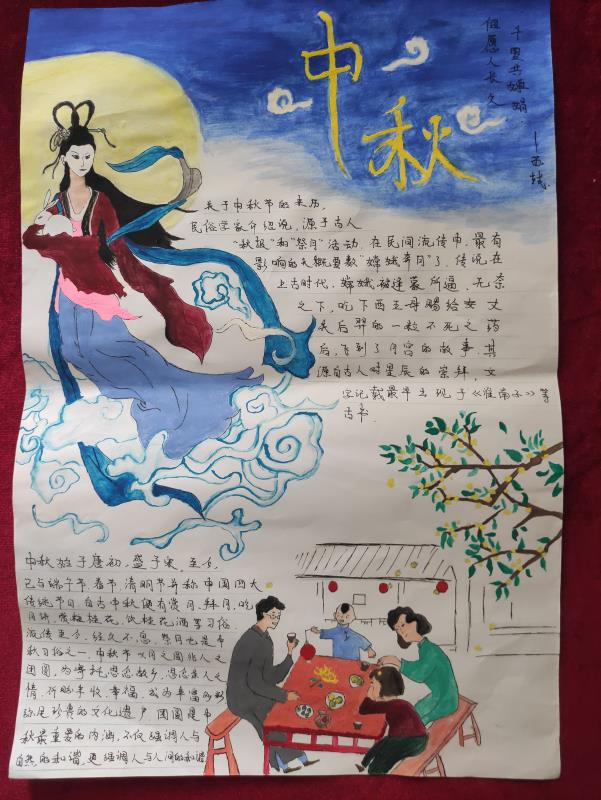 中秋
千里共婵娟
但愿人长久
关于中秋节的来历,
民俗学家介绍说,源于古人
“秋报”和“祭月”活动,在民间流传中,最有
影响的大概要数“嫦娥奔月”了,传说在
上古时代,嫦娥被逢蒙所逼,无奈
之下,吃下西王母赐给丈
夫后羿的一粒不死之药
后,飞到了月宫的故事,其
源自古人对星辰的崇拜,文
字记载最早出现于《淮南子》等
古书
中秋始于唐初,盛于宋,至今,
已与端午节、春节、清明节并称中国四大
传统节日,自古中秋便有赏月、拜月、吃
月饼、赏桂花、饮桂花酒等习俗,
流传至今,经久不息,祭月也是中
秋习俗之一,中秋节以月之圆兆人之
团圆,为寄托思念故乡,思念亲人之
情,祈盼丰收、幸福,成为丰富多彩
弥足珍贵的文化遗产,团圆是中
秋最重要的内涵,不仅强调人与
自然的和谐,更强调人与人间的和谐